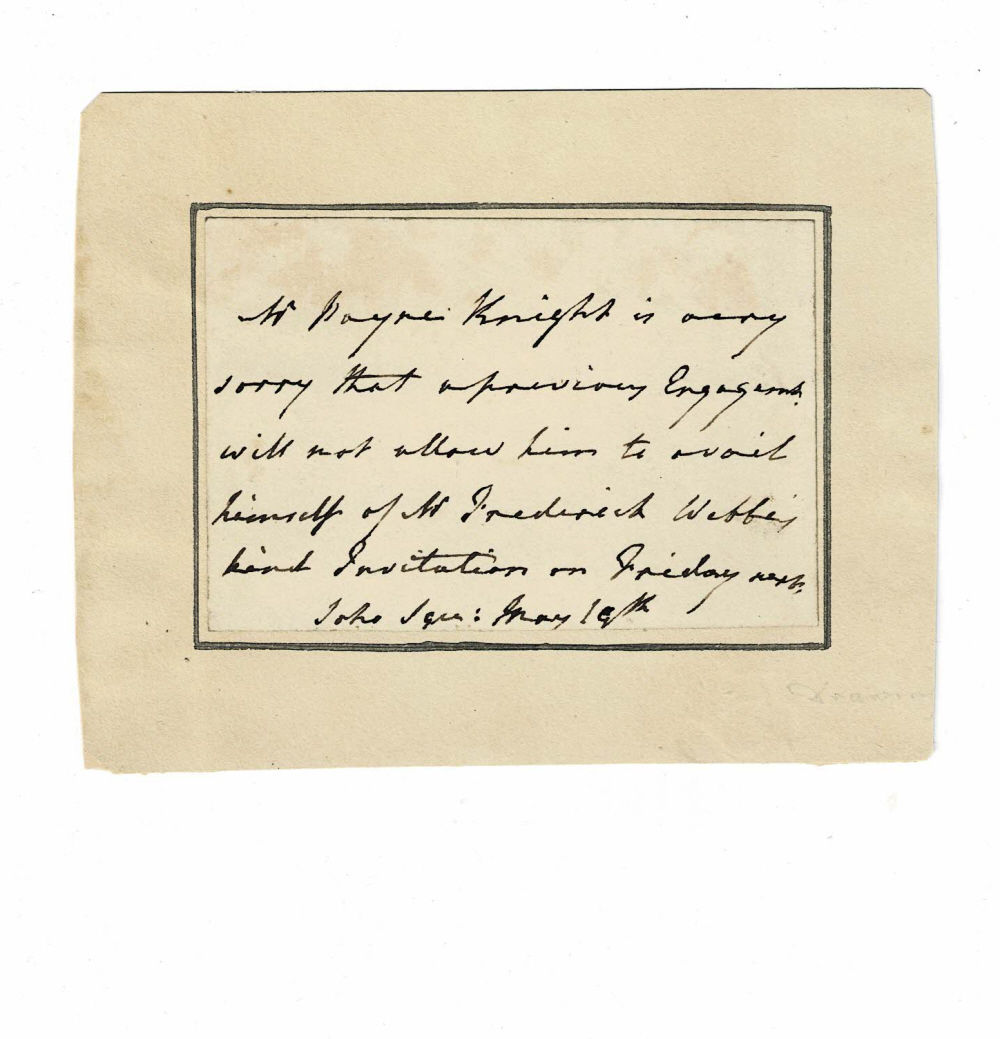 Mr Payne Knight is very
sorry that a previous Engagemt.
will not allow him to avail
himself of Mr Frederick Webb's
kind Invitation on Friday next.
Soho Squ: May 19th